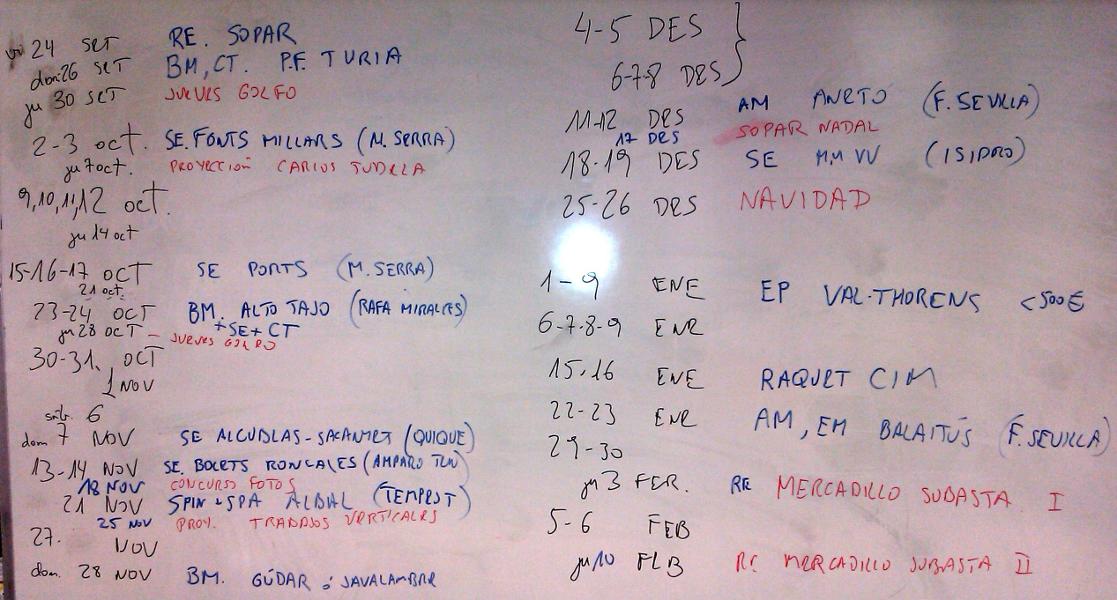 vi 24 SET RE. SOPAR
dom. 26 SET BM, CT. P.F. TURIA
ju 30 SET JUEVES GOLFO
2-3 oct. SE. FONTS MILLARS (M. SERRA)
ju 7 oct. PROYECCIÓN CARLOS TUDELA
9,10,11,12 oct.
ju 14 oct
15-16-17 OCT SE PORTS (M. SERRA)
21 oct.
23-24 OCT BM. ALTO TAJO (RAFA MIRALLES)
+SE+CT
ju 28 OCT - JUEVES GOLFO
30-31. OCT
1 NOV
sáb. 6
dom 7 NOV SE ALCUBLAS-SACAÑET (QUIQUE)
13-14 NOV SE. BOLETS RONCALES (AMPARO TUN)
18 NOV CONCURSO FOTOS
21 NOV SPIN + SPA ALBAL (TEMPEST)
25 NOV PROY. TRABAJOS VERTICALES
27. NOV
dom. 28 NOV BM. GÚDAR ó JAVALAMBRE
4-5 DES }
6-7-8 DES
11-12 DES AM ANETO (F. SEVILLA)
17 DES SOPAR NADAL
18-19 DES SE MM VV (ISIDRO)
25-26 DES NAVIDAD
1-9 ENE EP VAL-THORENS <500€
6-7-8-9 ENE
15-16 ENE RAQUET CIM
22-23 ENE AM, EM BALAITÚS (F. SEVILLA)
29-30
ju 3 FER. RE MERCADILLO SUBASTA I
5-6 FEB
ju 10 FEB RE MERCADILLO SUBASTA II